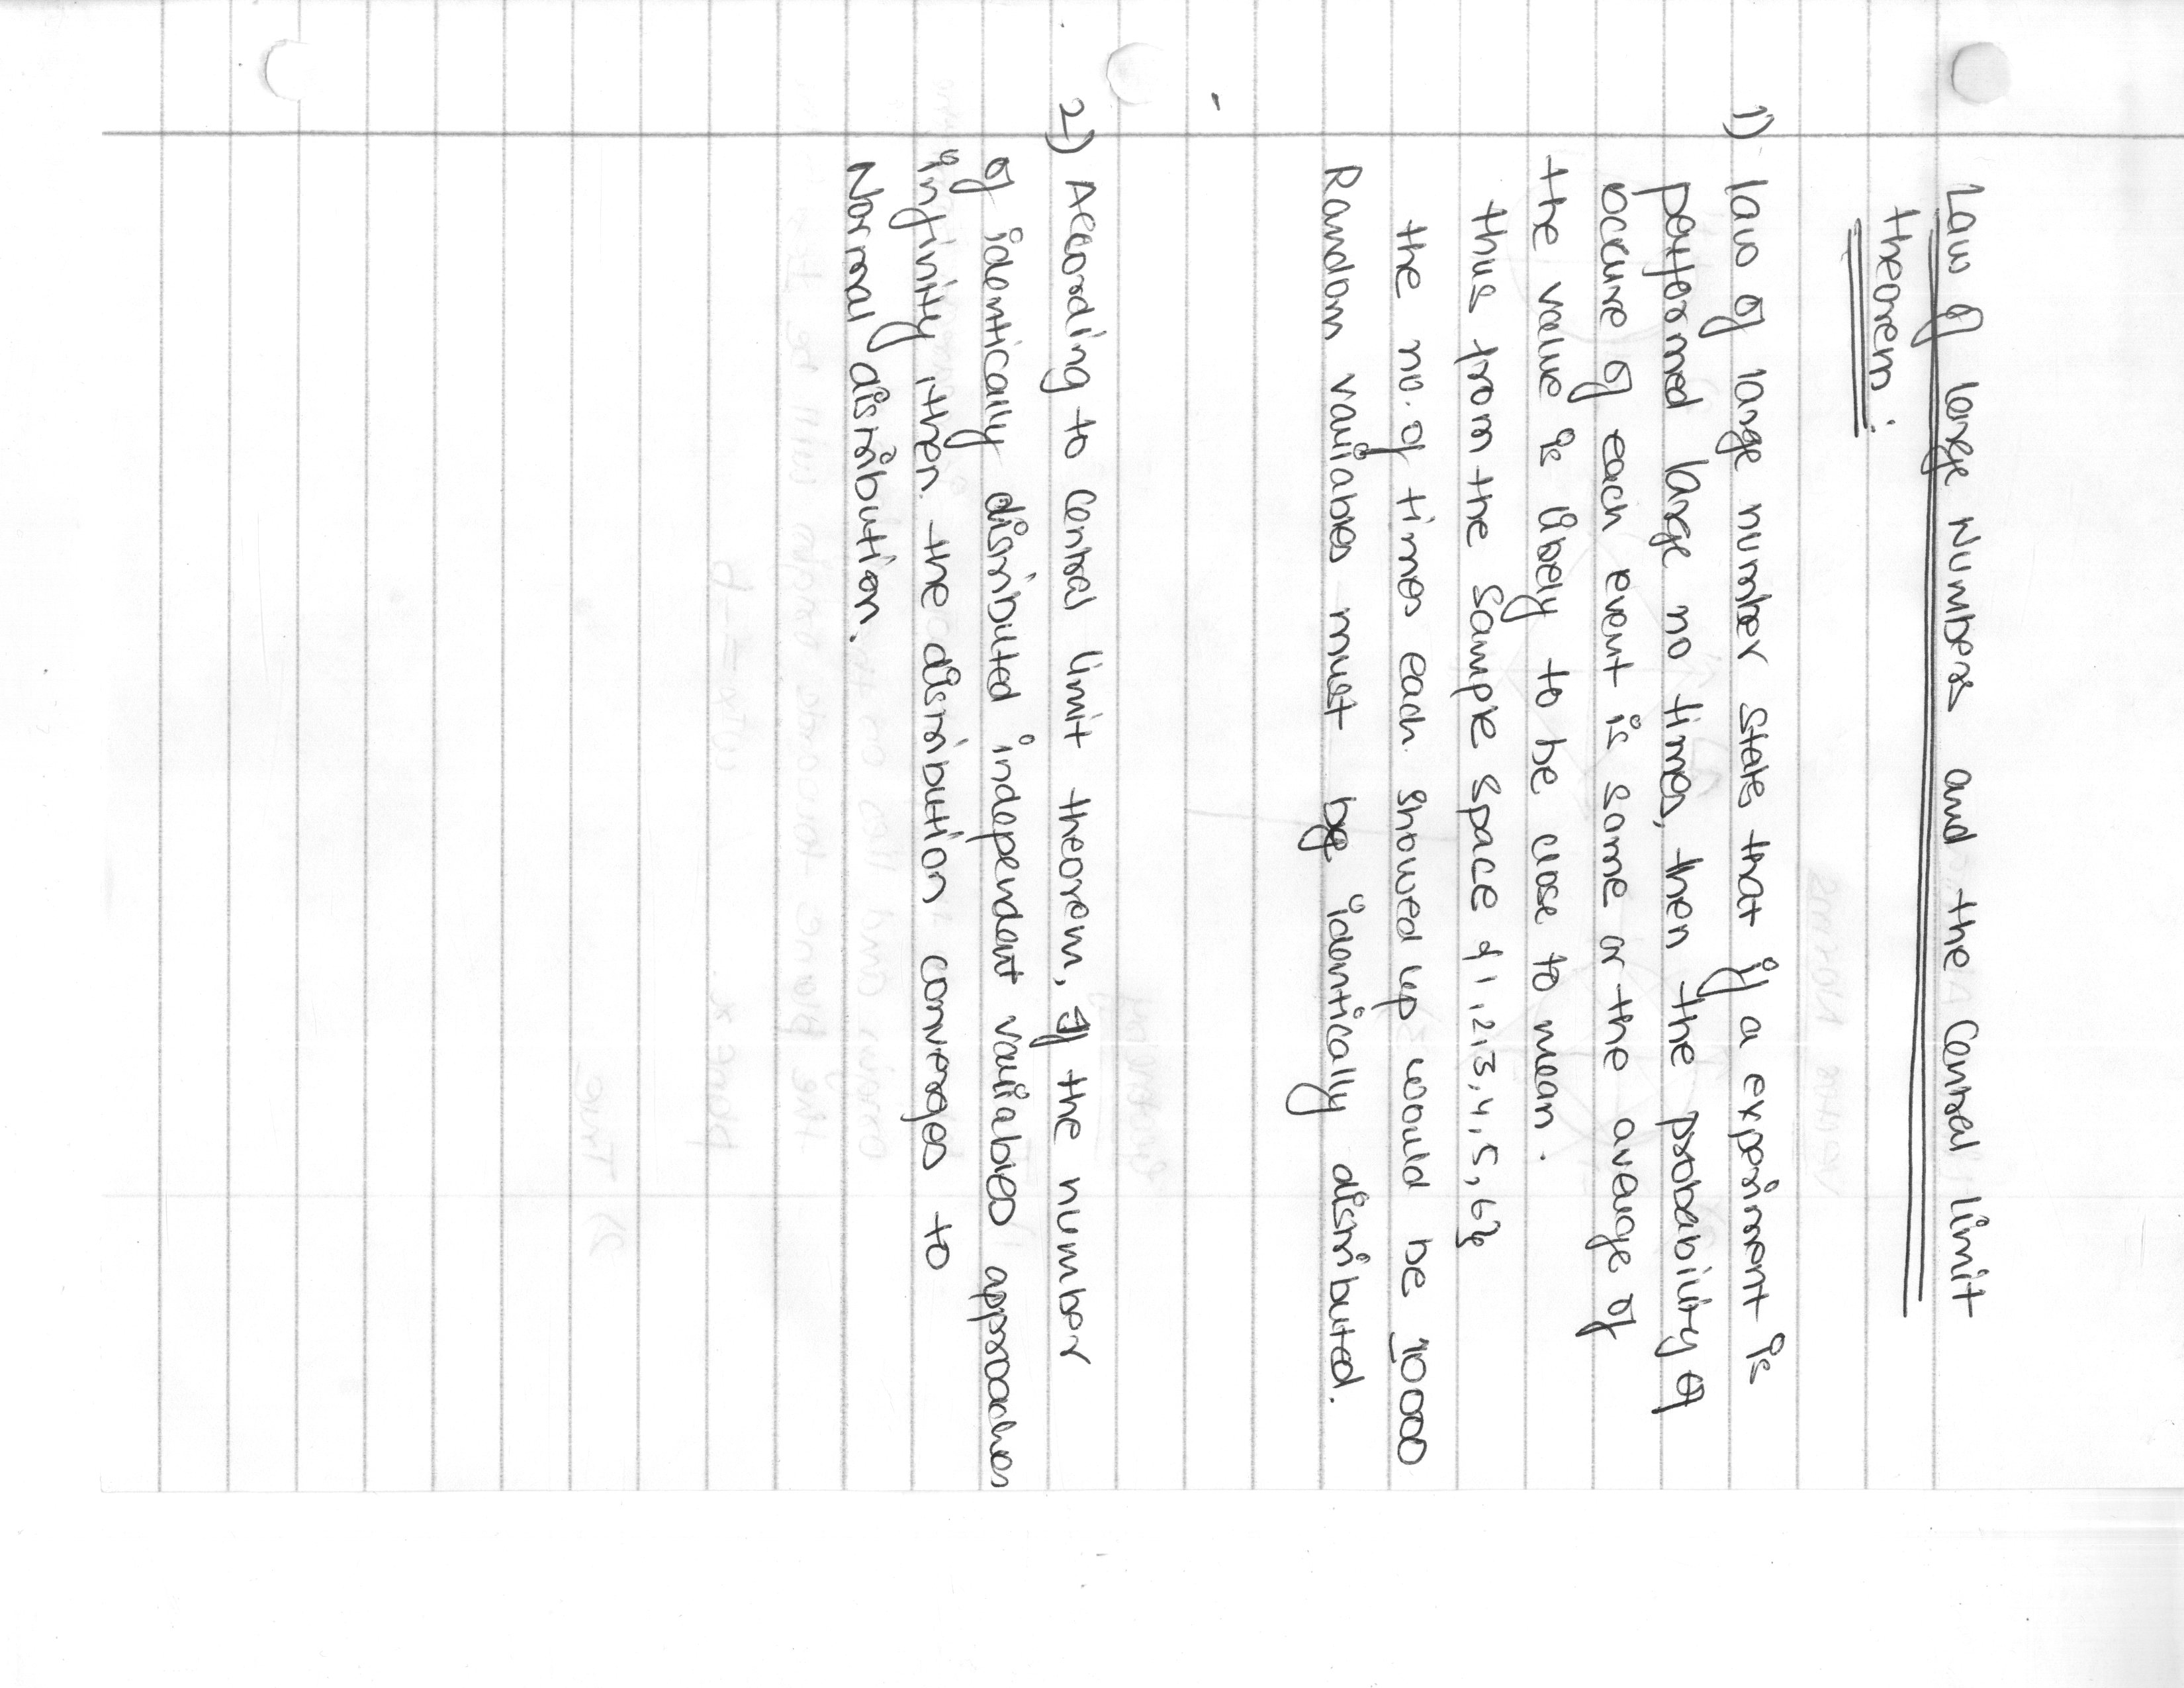 Law of large Numbers and the Central limit
theorem:
1) law of large number states that if a expriment is
performed large no times, then the probability of
occure of each event is same or the average of
the value is likely to be close to mean.
thus from the sample space {1,2,3,4,5,6}
the no. of times each showed up would be 10000
Random variables must be identically distributed.
2) According to Central limit theorem, if the number
of identically distributed independent variables approaches
infinity then the distribution converges to
Normal distribution.